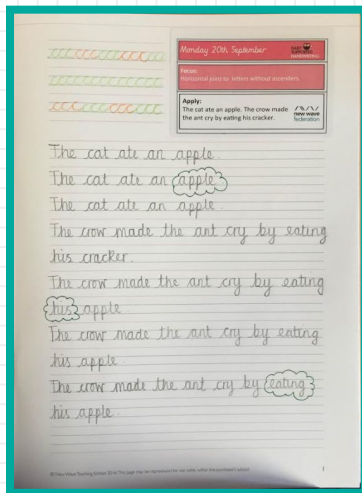 Monday 20th September
HANDWRITING
Focus:
Horizontal joins to letters without ascenders
Apply:
The cat ate an apple. The crow made
the ant cry by eating his cracker.
new wave
federation
The cat ate an apple.
The cat ate an apple
The cat ate an apple
The crow made the ant cry by eating
his cracker.
The crow made the ant cry by eating
his apple
The crow made the ant cry by eating
his apple
The crow made the ant cry by eating
his apple.
1